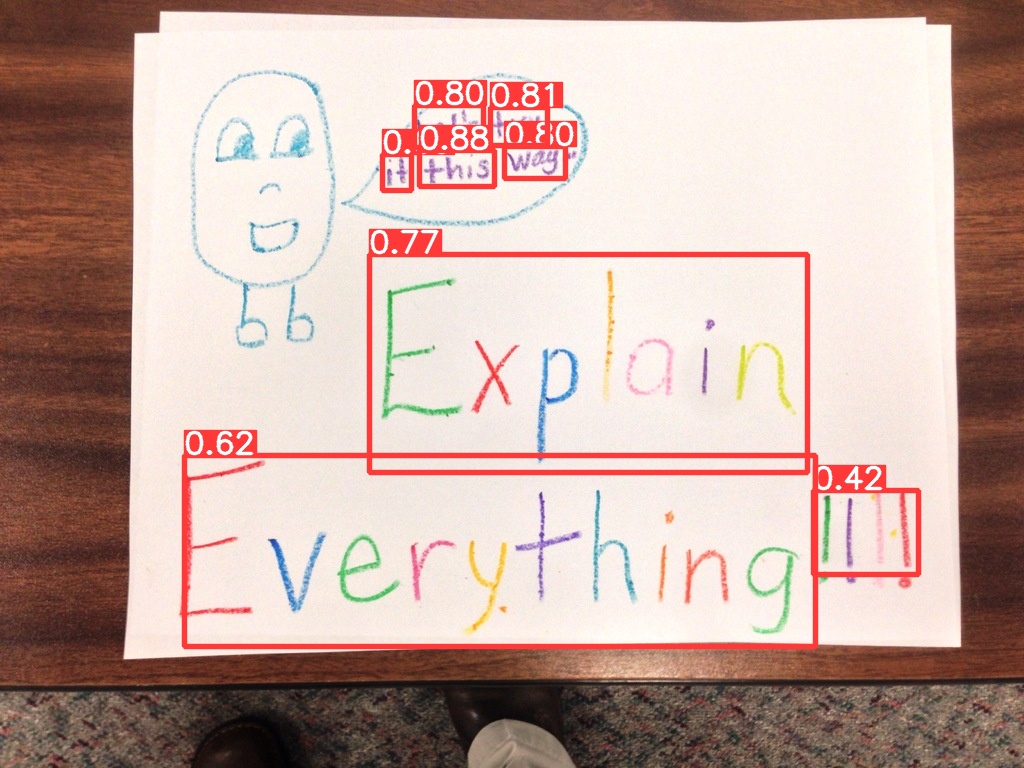 0.80 0.81
0.88 0.80
it this way.
0.77
Explain
0.62 0.42
Everything !!!!